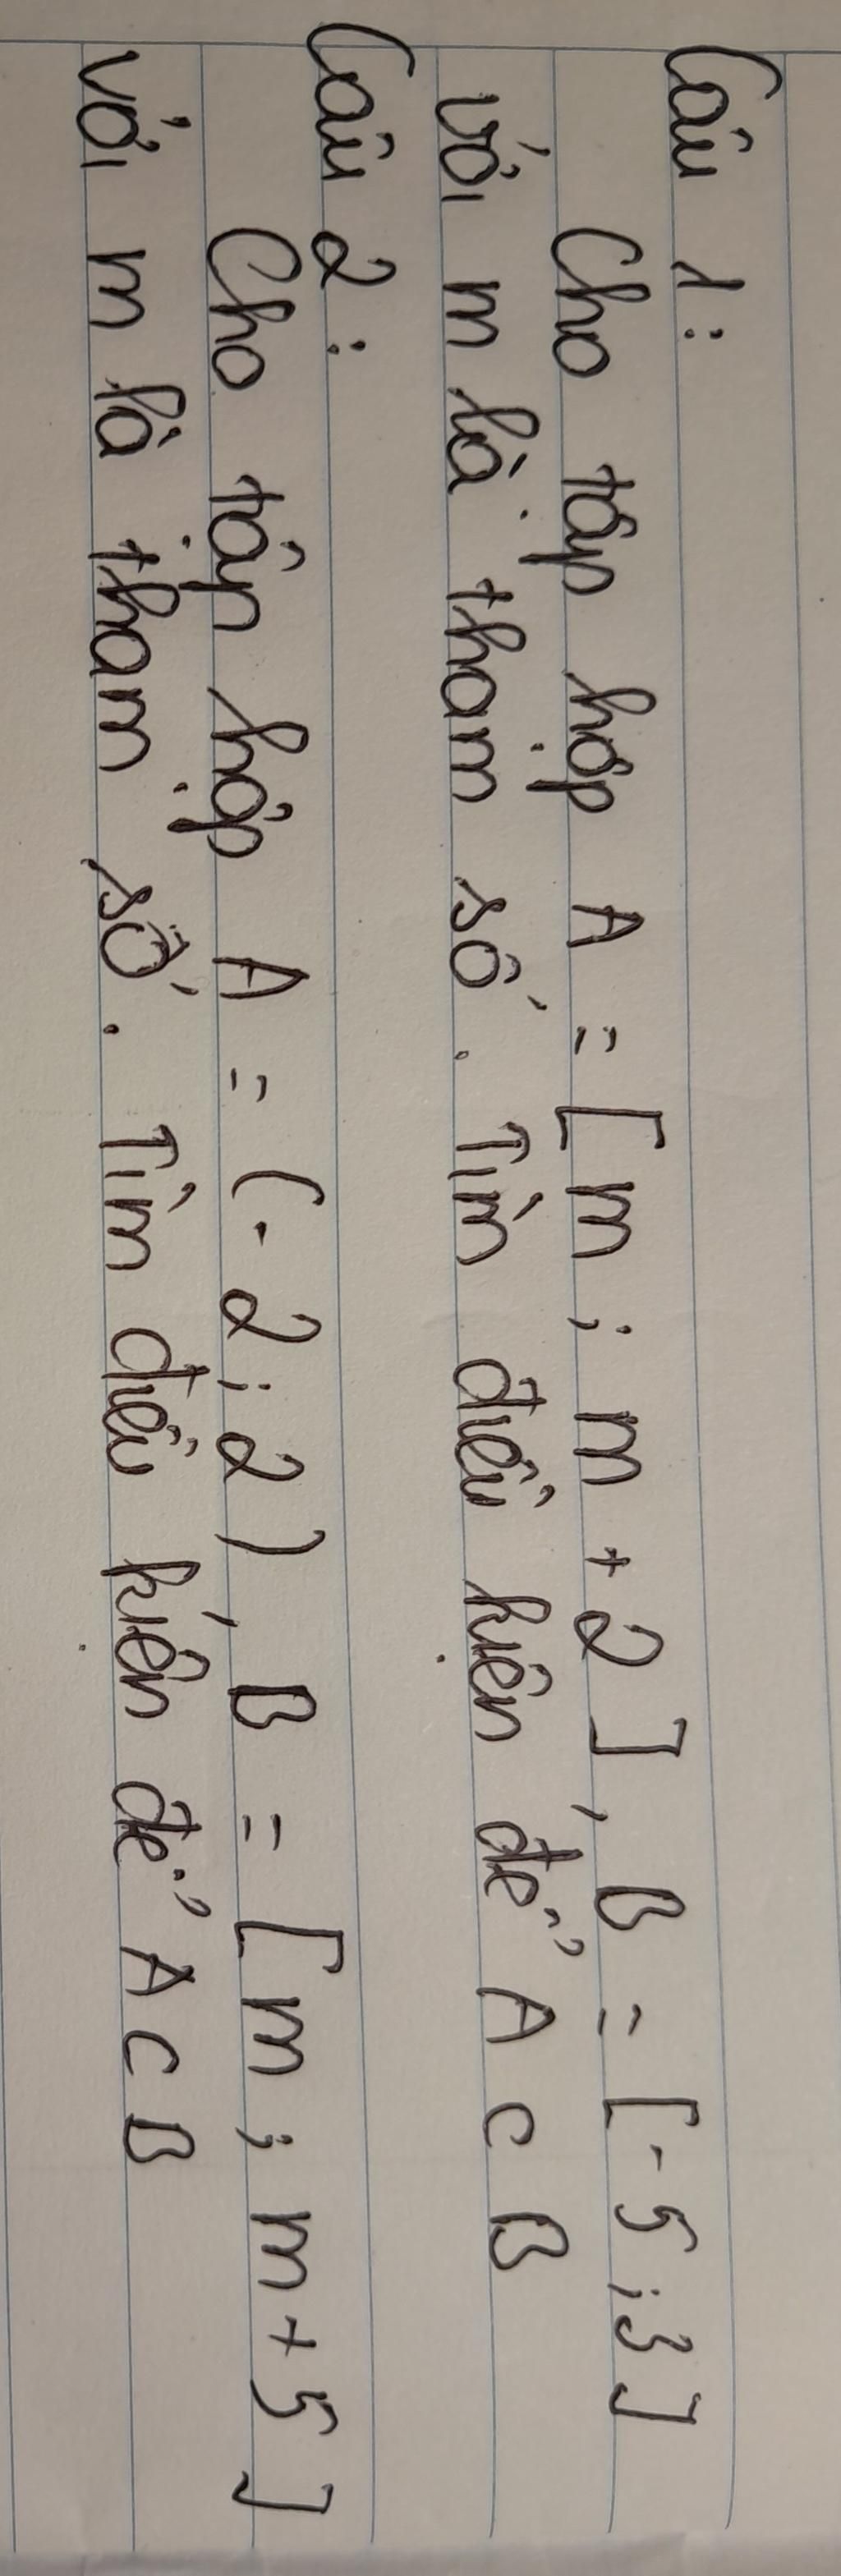 Câu 1:
Cho tập hợp A = [m ; m + 2], B = [-5 ; 3]
với m là tham số. Tìm điều kiện để A ⊂ B
Câu 2:
Cho tập hợp A = (-2 ; 2), B = [m ; m + 5]
với m là tham số. Tìm điều kiện để A ⊂ B